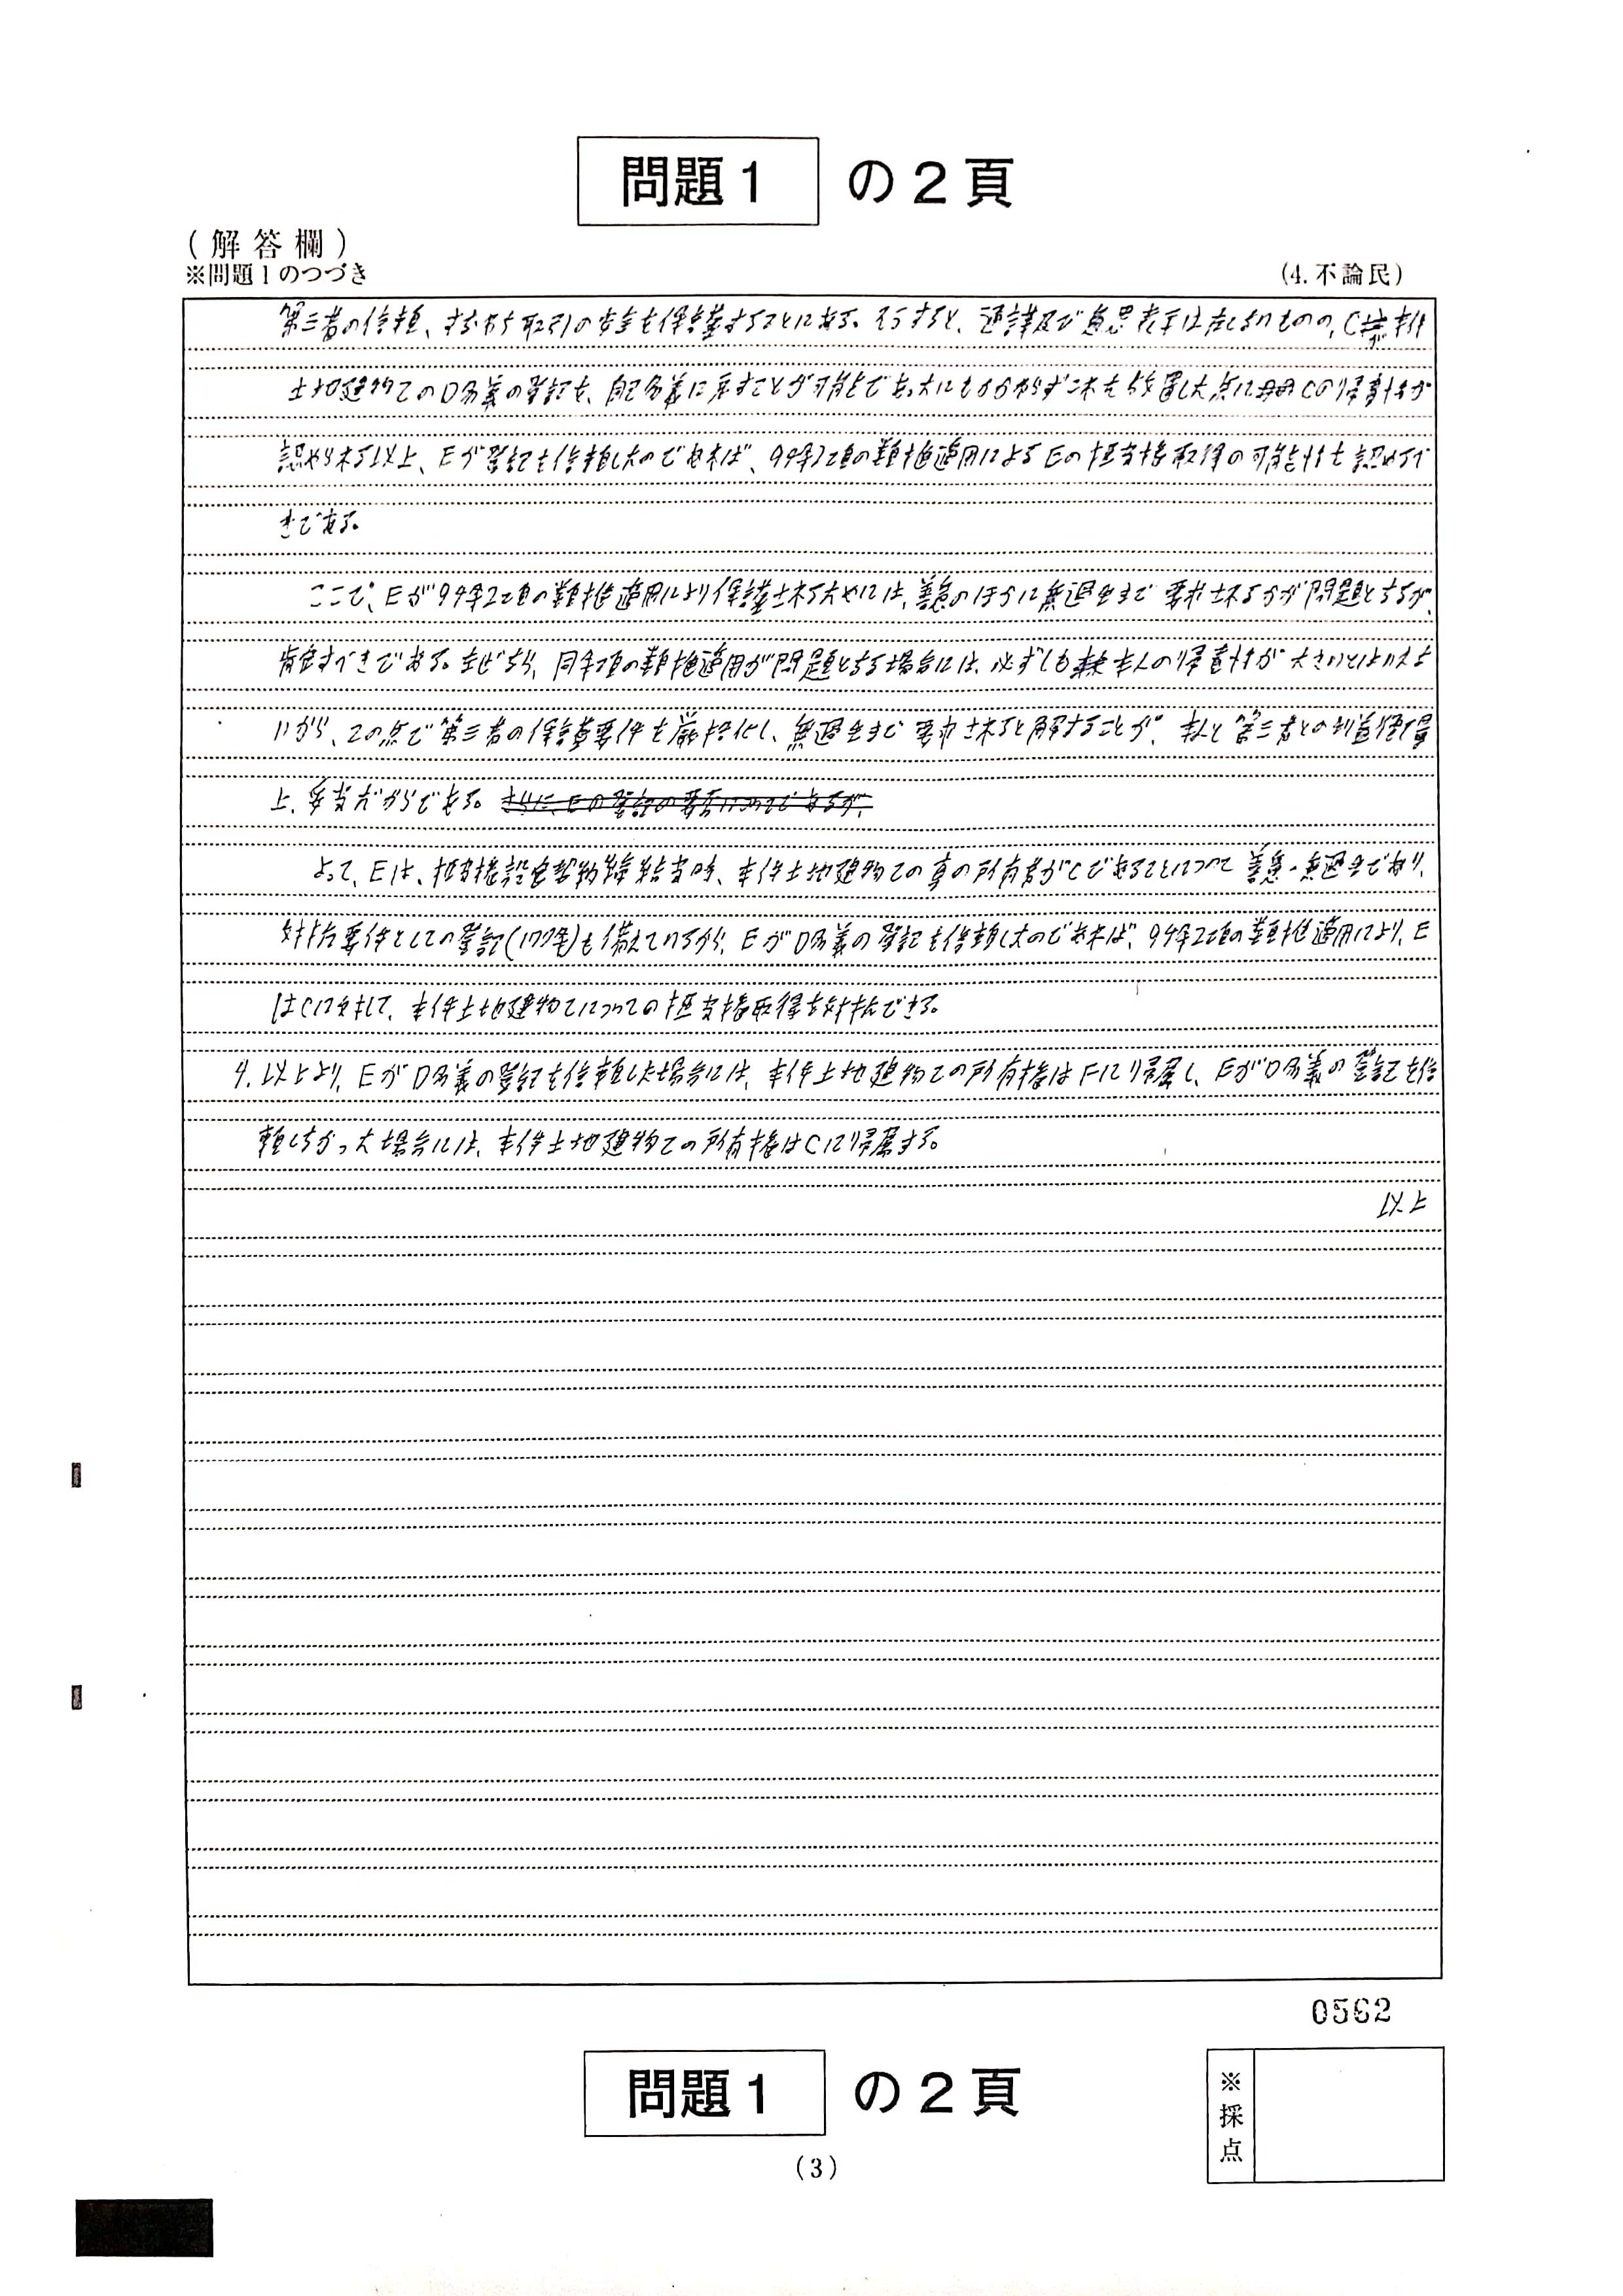 問題1 の2頁
(解答欄)
※問題1のつづき
(4.不論民)
第三者の信頼、すなわち取引の安全を保護することにある。そうすると、通謀及び意思表示は存しないものの、Cが本件
土地建物てのD名義の登記を、自己名義に戻すことが可能であったにもかかわらずこれを放置した点にCの帰責性が
認められる以上、Eが登記を信頼したのであれば、94条2項の類推適用によるEの抵当権取得の可能性も認めるべ
きである。
ここで、Eが94条2項の類推適用により保護されるためには、善意のほかに無過失まで要求されるかが問題となるが、
肯定すべきである。なぜなら、同条2項の類推適用が問題となる場合には、必ずしも本人の帰責性が大きいとはいえな
いから、この点で第三者の保護要件を厳格化し、無過失まで要求されると解することが、本人と第三者との利益衡量
上、妥当だからである。
よって、Eは、抵当権設定契約締結当時、本件土地建物ての真の所有者がCであることについて善意・無過失であり、
対抗要件としての登記(177条)も備えているから、EがD名義の登記を信頼したのであれば、94条2項の類推適用により、E
はCに対して、本件土地建物てについての抵当権取得を対抗できる。
4.以上より、EがD名義の登記を信頼した場合には、本件土地建物ての所有権はFに帰属し、EがD名義の登記を信
頼しなかった場合には、本件土地建物ての所有権はCに帰属する。
以上
0562
問題1 の2頁
※採点
(3)